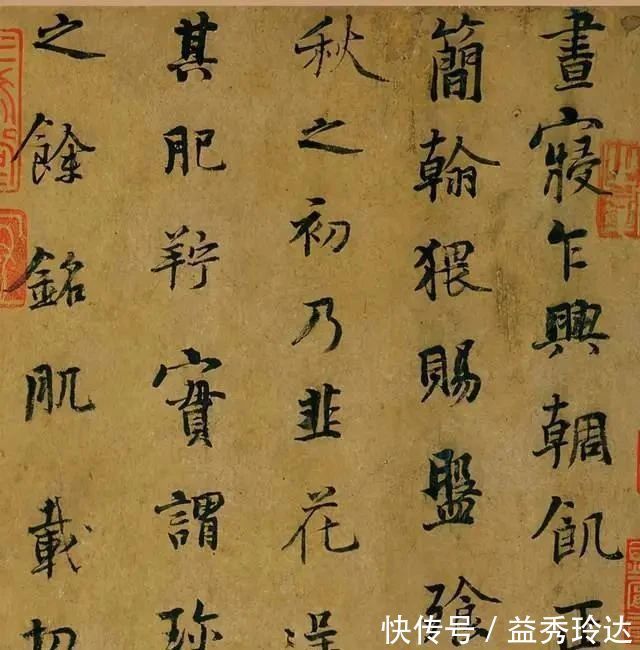 晝寢乍興輖飢正
簡翰猥賜盤飧
秋之初乃韭花逞
其肥羜實謂珍
之餘銘肌載切
快传号 / 益秀玲达